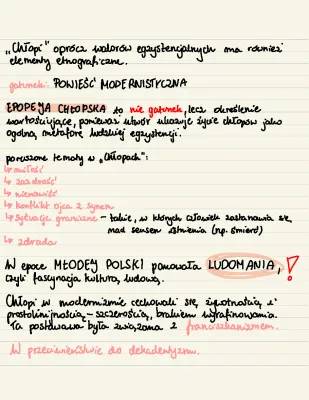 „Chłopi" oprócz walorów egzystencjalnych ma również
elementy etnograficzne.
gatunek: POWIEŚĆ MODERNISTYCZNA
EPOPEJA CHŁOPSKA to nie gatunek, lecz określenie
wartościujące, ponieważ utwór ukazuje życie chłopów jako
ogólną, metaforę ludzkiej egzystencji.
poruszone tematy w „Chłopach":
↳ miłość
↳ zazdrość
↳ nienawiść
↳ konflikt ojca z synem
↳ sytuacje graniczne – takie, w których człowiek zastanawia się
nad sensem istnienia (np. śmierć)
↳ zdrada
W epoce MŁODEJ POLSKI panowała LUDOMANIA, !
czyli fascynacja kulturą ludową.
Chłopi w modernizmie cechowali się żywotnością i
prostolinijnością – szczerością, brakiem wyrafinowania.
Ta postawa była związana z franciszkanizmem.
W przeciwieństwie do dekadentyzmu.